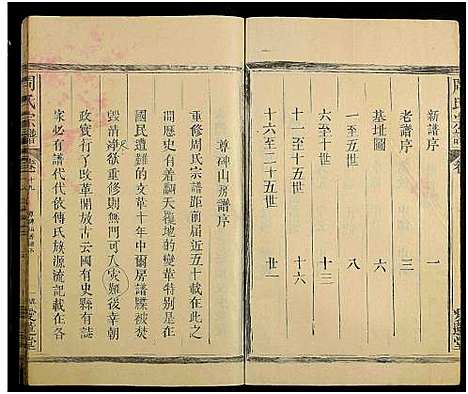 周氏宗譜
新譜序 一
老譜序 三
基址图 六
一至五世 八
六至十世 十三
十一至十五世
十六至二十五世 廿一
尊碑山房譜序
重修周氏宗譜距前届近五十載在此之
間歷史有着翻天覆地的變革特別是在
國民遭難的文革十年中爾房譜牒被焚
毀清淨欲重修則無門人災難後幸朝
政實行了改革開放古云國有史縣有誌
家必有譜代代敘傳氏族源流記載在各
周氏宗譜
愛蓮堂